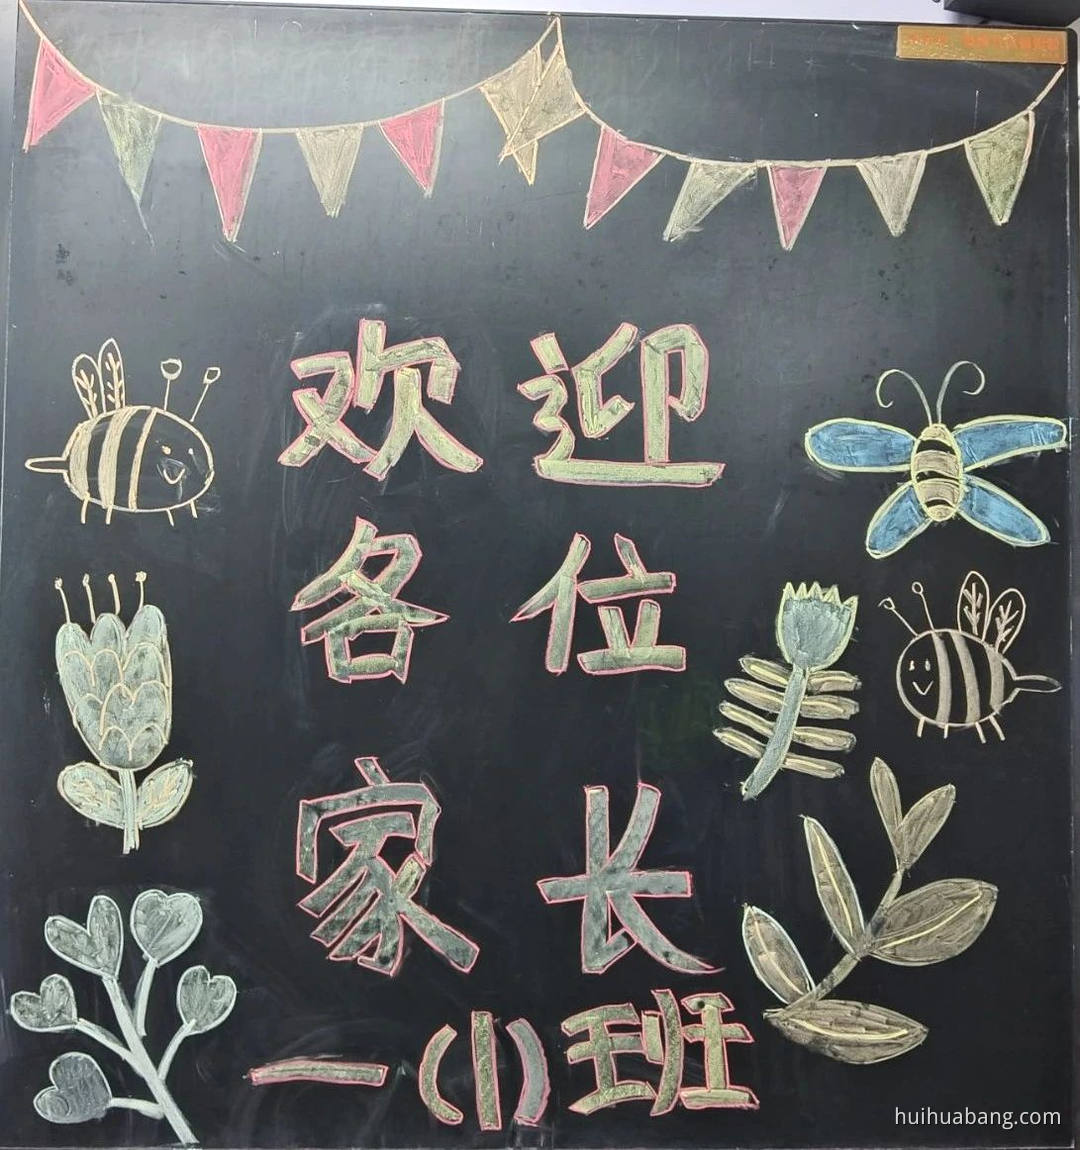 欢迎
各位
家长
一(1)班
huihuabang.com